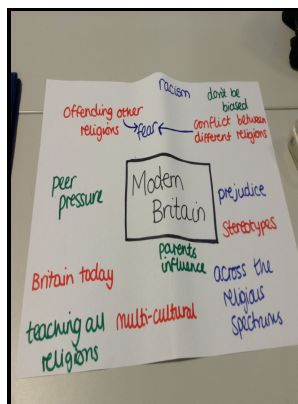 racism
don't be
biased
Offending other
religions
fear
conflict between
different religions
Peer
pressure
Modern
Britain
prejudice
Stereotypes
parents
influence
across the
religious
spectrums
Britain today
multi-cultural
teaching all
religions